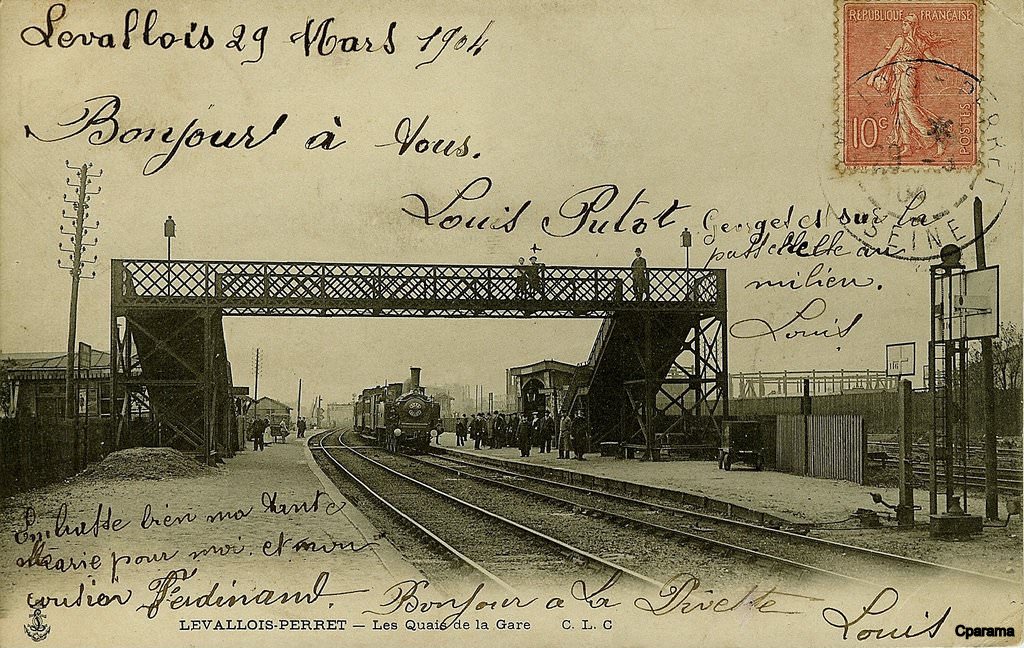 Levallois 29 Mars 1904
RÉPUBLIQUE FRANÇAISE
10c
POSTES
PERRET
SEINE
Bonjour à Vous.
Louis Putot
Georges et sur la
passerelle au
milien.
Louis
Embrasse bien ma tante
Marie pour moi et mon
cousien Ferdinand.
Bonjour a La Divette
Louis
LEVALLOIS-PERRET — Les Quais de la Gare C. L. C
Cparama